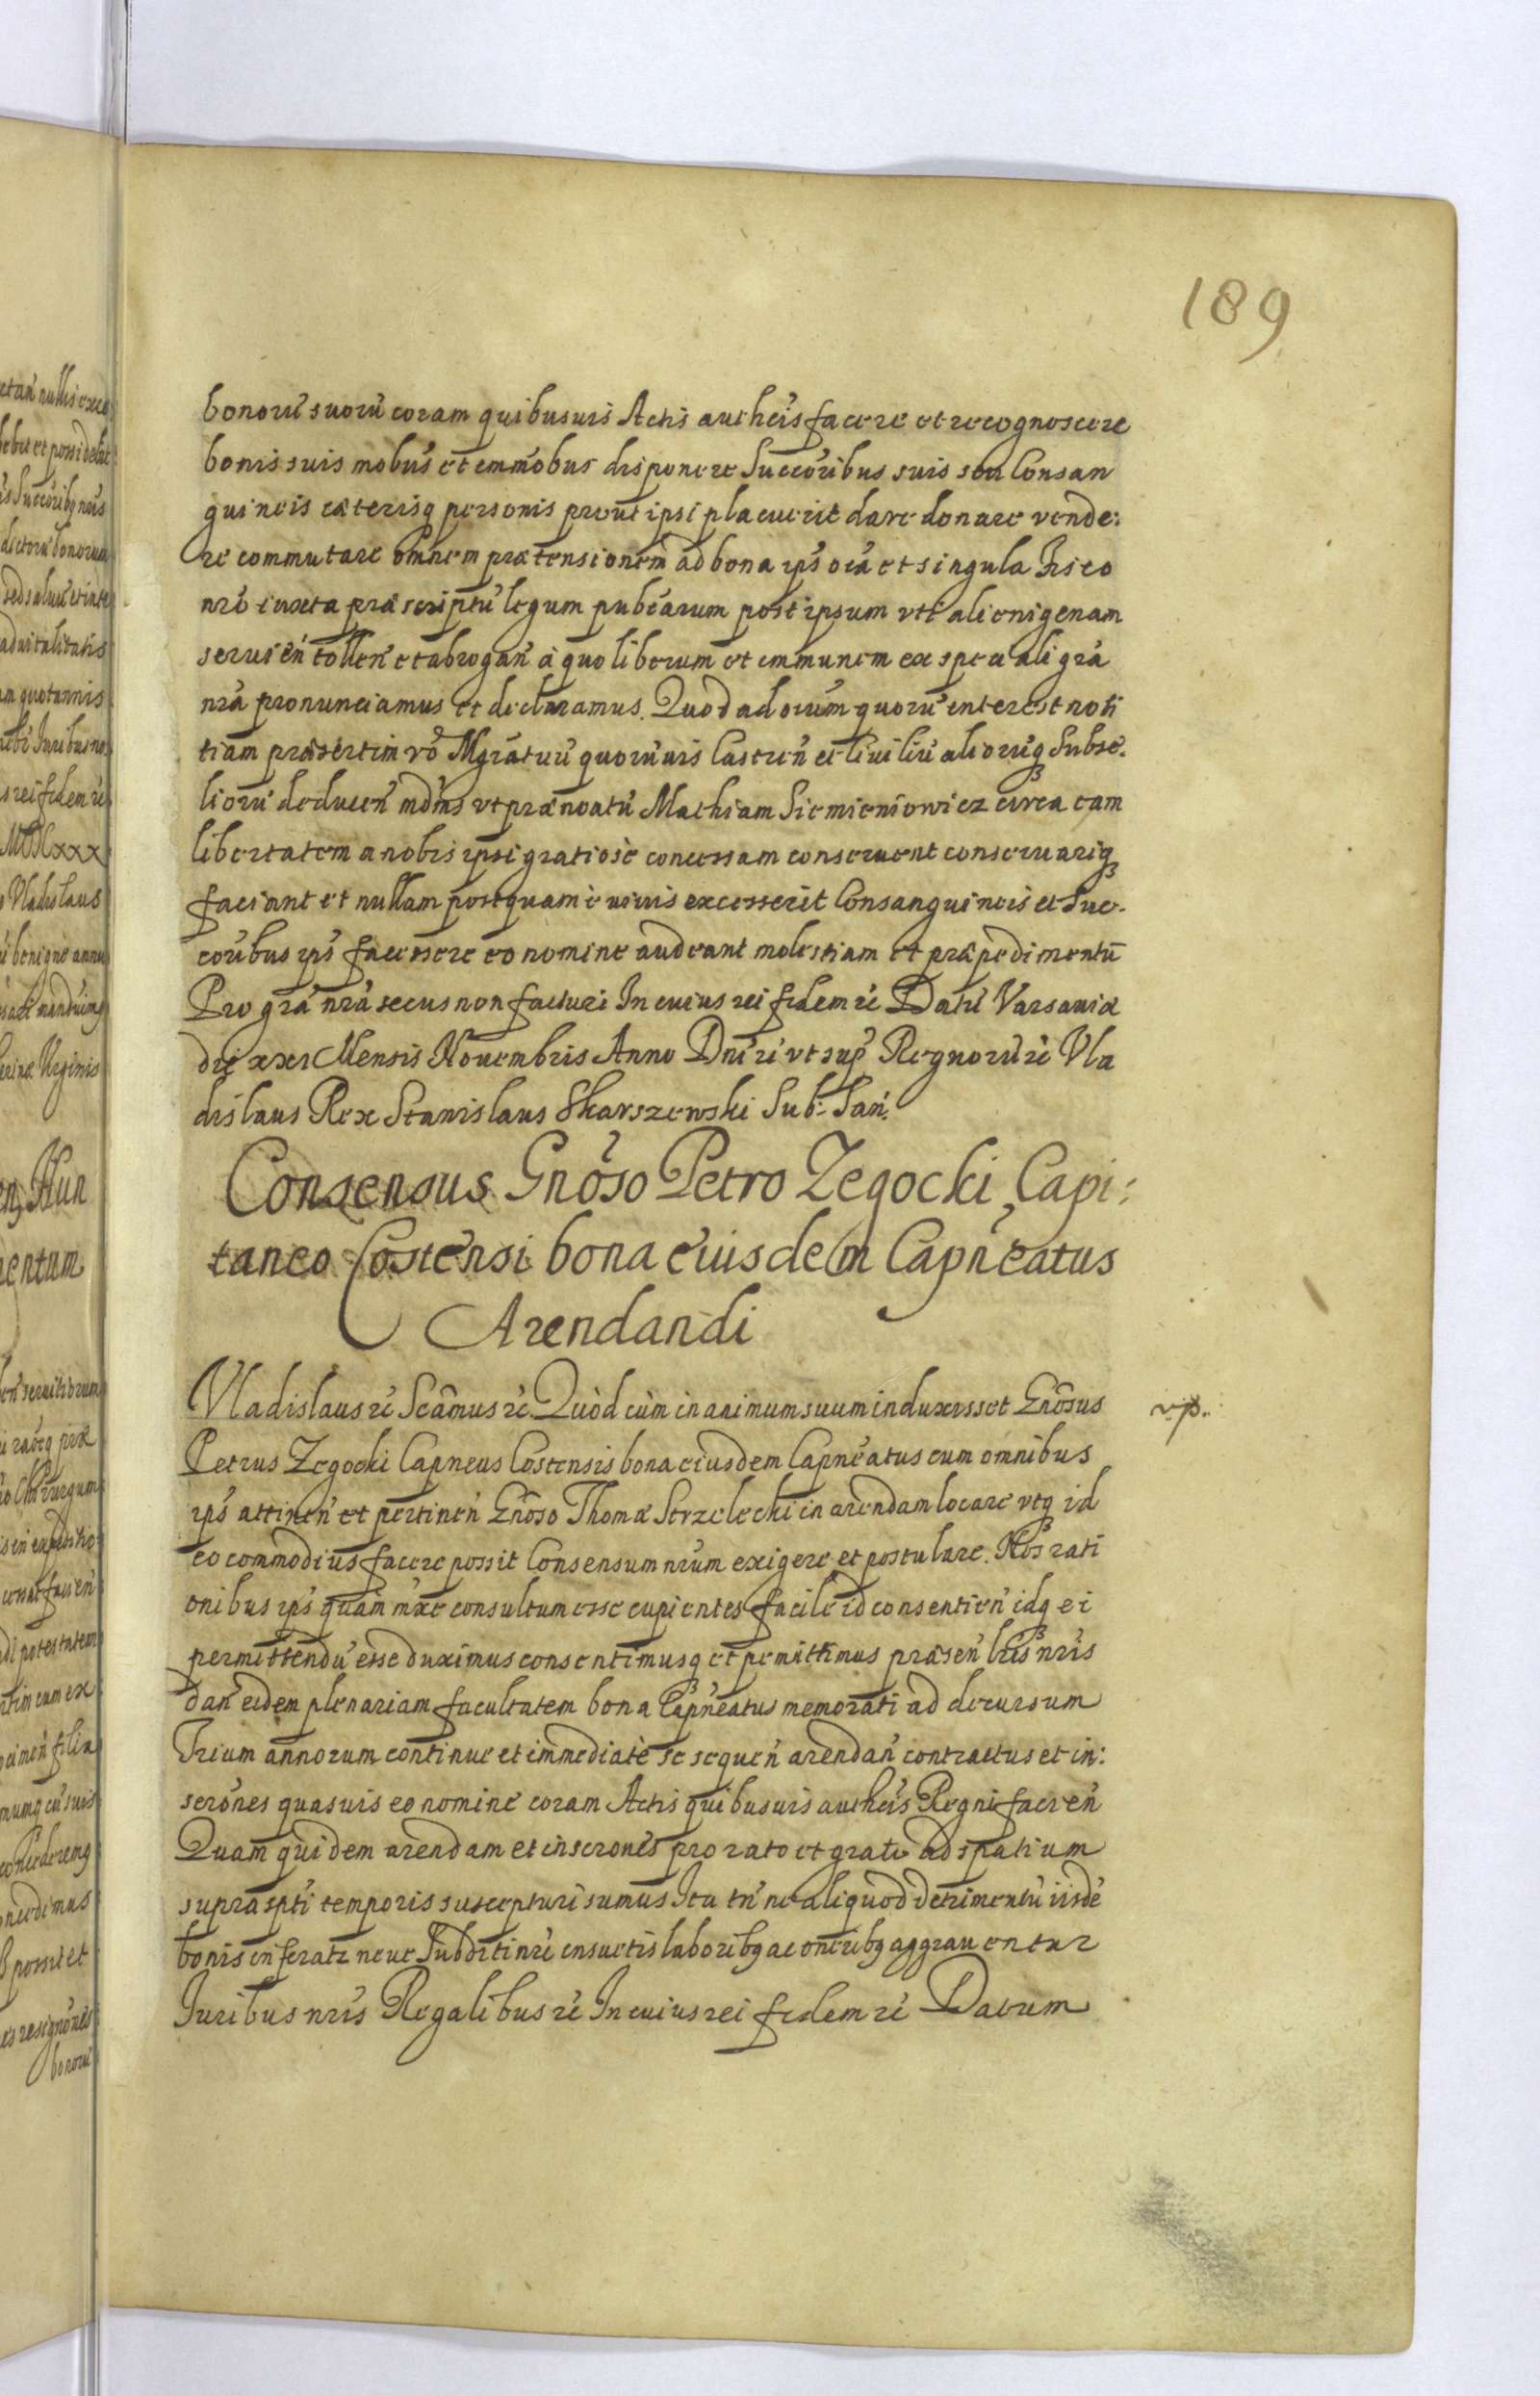 189
bonorũ suorũ coram quibusuis Actis authĕis facere et recognoscere
bonis suis mobus et immobus disponere Succoribus suis seu Consan
guineis cæterisq personis prout ipsi placuerit dare donare vende:
re commutare omnem prætensionem ad bona ips oia et singula Fisco
nro iuxta præscriptũ legum pubcarum post ipsum vti alienigenam
seruien tollen et abrogan a quo liberum et immunem ex speciali gra
nra pronunciamus et declaramus. Quod ad oium quorũ interest noti
tiam præsertim vo Mgratuũ quoruuis Castren et Ciuiliũ aliorũq Subse:
liorũ deducen mdms vt prænoatũ Mathiam Siemieniowicz circa eam
libertatem a nobis ipsi gratiose concessam conseruent conseruariq
faciant et nullam postquam e viuis excesserit Consanguineis et Suc-
coribus ips facessere eo nomine audeant molestiam et præpedimentũ
Pro gra nra secus non facturi In cuius rei fidem re Datũ Varsauiæ
die xxi Mensis Nouembris Anno Dni re vt sup Regnorũ re Vla
dislaus Rex Stanislaus Skarszewski Sub: San:
Consensus Gnoso Petro Zegocki Capi:
taneo Costensi bona eiusdem Capneatus
Arendandi
Vladislaus re Scamus re Quod cum in animum suum induxisset Gnosus
vp.
Petrus Zegocki Capneus Costensis bona eiusdem Capneatus cum omnibus
ips attinen et pertinen Gnoso Thomæ Strzelecki in arendam locare vtq id
eo commodius facere possit Consensum nrum exigere et postulare. Nos rati
onibus ips quam mxe consultum esse cupientes facile id consentien idq ei
permittendũ esse duximus consentimusq et permittimus præsen lris nris
dan eidem plenariam facultatem bona Capneatus memorati ad decursum
Trium annorum continue et immediate se sequen arendan contractus et in:
scrones quasuis eo nomine coram Actis quibusuis autheis Regni facien
Quam quidem arendam et inscrones pro rato et grato ad spatium
suprascpti temporis suscepturi sumus Ita tn ne aliquod detrimentũ iisde
bonis inferatr neue Subditi nri insuetis laboribq ac oneribq aggrauentur
Iuribus nris Regalibus re In cuius rei fidem re Datum